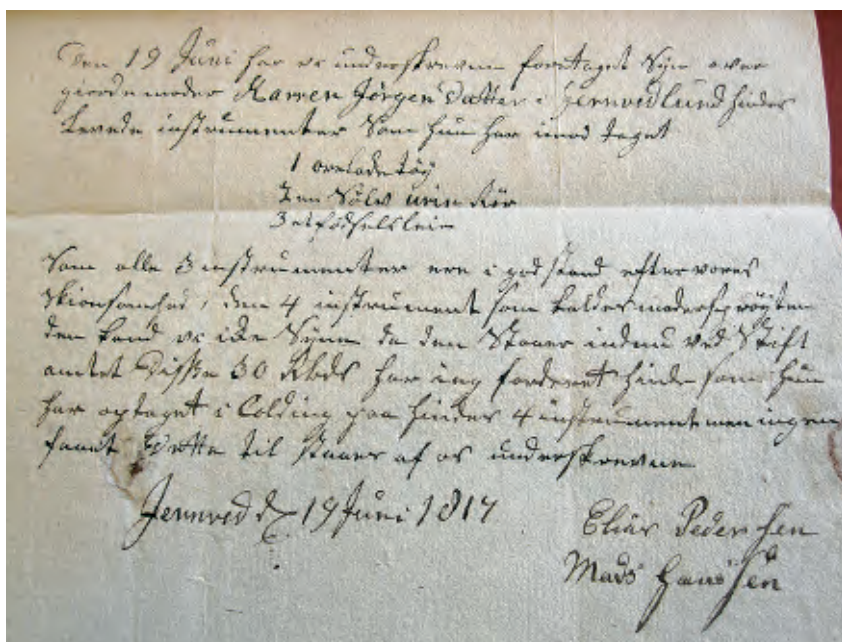 Den 19 Juni har vi underskrevne foretaget Syn over
giordemoder Karren Jörgen Datter i Gernvedlund hindes
instrumenter Som hun har imod taget
1
2 en Sölv urin Rör
3 et
Som alle 3 instrumenter ere i god stand efter vores
Skiönsomhed, den 4 instrument som kaldes modersprøyten
den kand vi ike Syne da den Staaer indnu ved Stift
amtet Disse 30 Rbds har ieg forderet hinde som hun
har optaget i Colding paa hindes 4 instrument men ingen
faaet Dette til staaes af os underskrevne
Jernved d 19 Juni 1817
Elias Pedersen
Mads Hansen